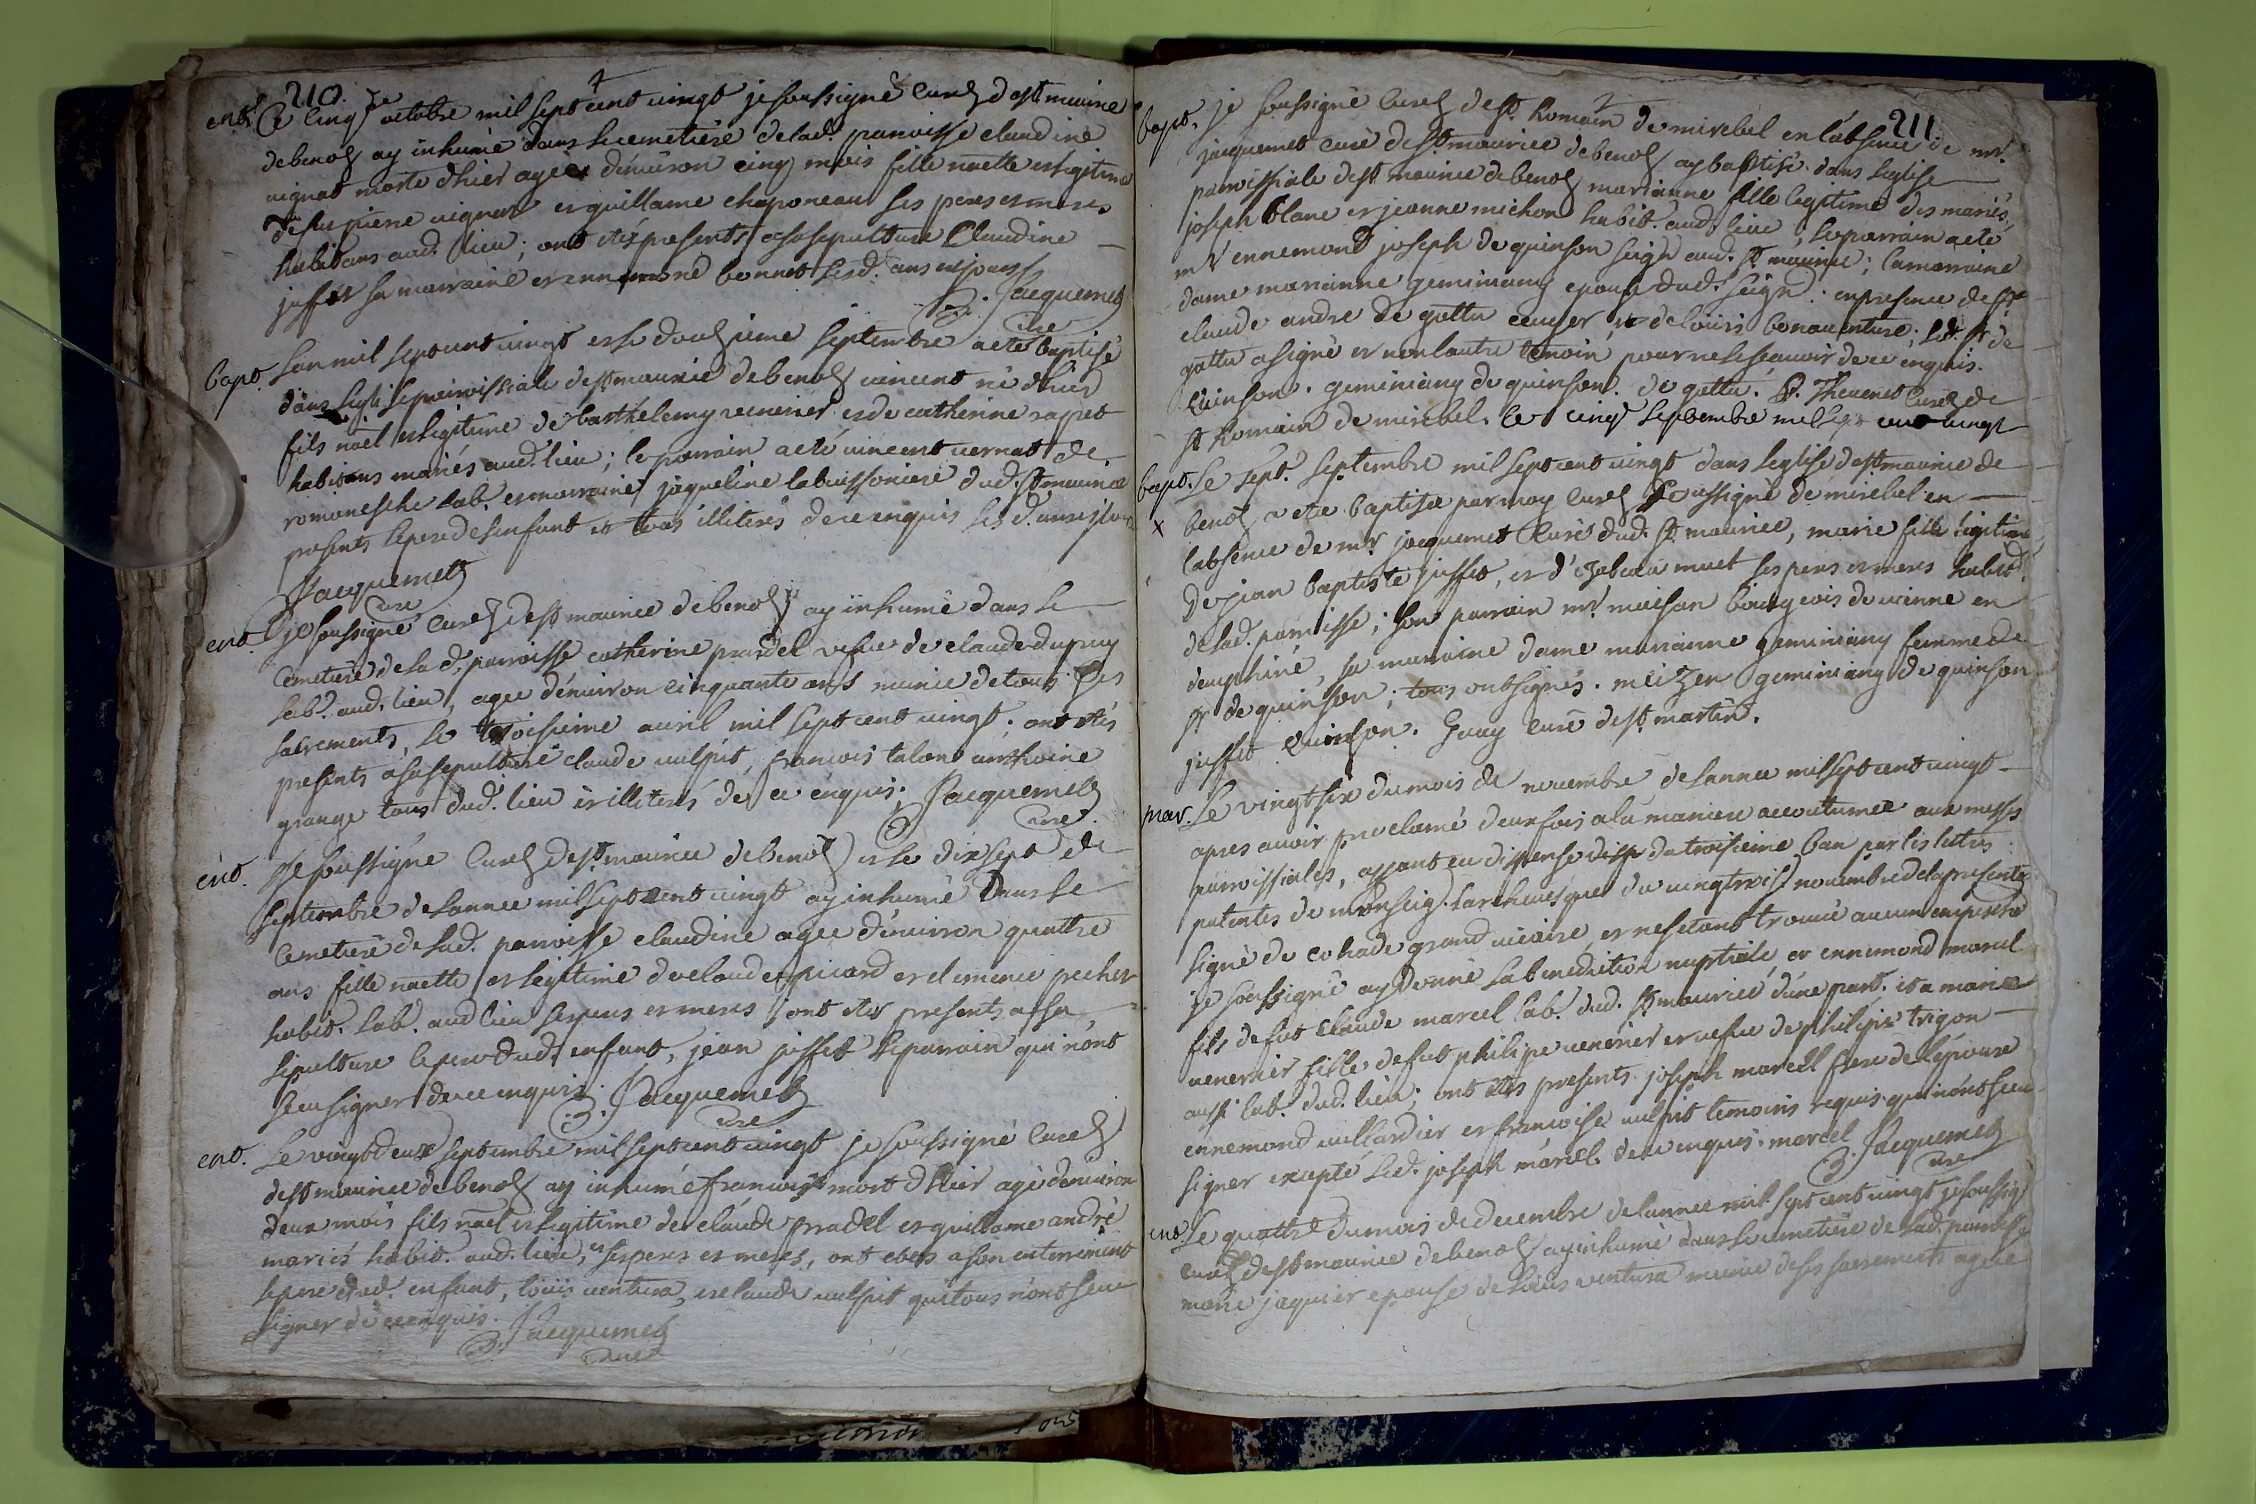 210.
ent. Ce cinq.e octobre mil sept cent vingt je soussigné curéz de st maurice
de benoz ay inhumé dans le cemetière de lad. parroisse claudine
vignat morte d'hier agée d'environ cinq mois fille naelle et legitime
de feu pierre vignat et guillame chaponeau ses peres et meres
habitans aud. lieu; ont étés presents a sa sepulture Claudine
juffet sa marraine et ennemond bonnet lesd. ans et jours
Jacquemetz
curé
bapt. L'an mil sept cent vingt et le douzieme septembre a eté baptisé
dans l'eglise parroissiale de st maurice de benoz vincent né d'hier
fils nael et legitime de barthelemy venerier et de catherine rappet
habitans mariés aud. lieu; le parrain a eté vincent vernat de
romanesche lab. et marraine jaqueline labuissoniere dud. st maurice
presents le pere de l'enfant et tous illiterés de ce enquis lesd. an et jour
Jacquemetz
curé
ent. Je soussigné curéz de st maurice de benoz ay inhumé dans le
cemetière de la d. parroisse catherine pradel vefue de claude dupuy
lab. aud. lieu, agée d'environ cinquante ans munie de tous ses
sacrements, le troisieme avril mil sept cent vingt. ont étés
presents a sa sepulture claude vulpit, francois talon anthoine
grange tous dud. lieu et illiterés de ce enquis. Jacquemetz
curé.
ent. Je soussigné curéz de st maurice de benoz et le dix sept de
septembre de l'annee mil sept cent vingt ay inhumé dans le
cemetière de lad. parroisse claudine agée d'environ quattre
ans fille naelle et legitime de claude picard et clemence pecher
habit. lab. aud. lieu ses peres et meres ont étés presents a sa
sepulture le pere dud. enfant, jean juffet le parrain qui n'ont
sceu signer de ce enquis. Jacquemetz
curé
ent. Le vingt deux septembre mil sept cent vingt je soussigné curéz
de st maurice de benoz ay inhumé francois mort d'hier agé d'environ
deux mois fils nael et legitime de claude pradel et guillame andré
mariés habit. aud. lieu, ses peres et meres, ont etes a son enterrement
le pere dud. enfant, louis ventura, et claude vulpit qui tous n'ont sceu
signer de ce enquis. Jacquemetz
curé
211.
bapt. Je soussigné curéz de st. Romain de mirebel en l'absence de mr.
jacquemet curé de st maurice de benoz ay baptisé dans l'eglise
parroissiale de st maurice de benoz marianne fille legitime des mariés
joseph blanc et jeanne michon habit. aud. lieu, le parrain a eté
mr ennemond joseph de quinson seigr. aud. st maurice; la marraine
dame marianne geminiany epouse dud. seigr. en presence de sr
claude andre de gatta ecuyer, et de louis bonaventure; led. sr de
gatta a signé et non l'autre temoin pour ne le scavoir de ce enquis.
Quinson. geminiany de quinson. de gatta. P. Thevenet curéz de
st Romain de mirebel. le cinq septembre mil sept cent vingt
bapt. Le sept. septembre mil sept cent vingt dans l'eglise de st maurice de
x benoz a eté baptisée par moy curéz soussigné de mirebel en
l'absence de mr. jacquemet curé dud. st maurice, marie fille legitime
de jean baptiste juffet, et d'izabeau muet ses peres et meres habit.
de lad. parroisse; son parrain mr. maison bourgeois de vienne en
dauphiné, sa marraine dame marianne geminiany femme de
sr de quinson; tous ont signés. meizen geminiany de quinson
juffet Quinson. Guay curé de st martin.
mar. Le vingt six du mois de novembre de l'annee mil sept cent vingt
apres avoir proclamé deux fois a la maniere accoutumée aux messes
parroissiales, ayant eu dispense du troisieme ban par les lettres
patentes de monseig. l'archevesque du vingt trois. novembre de la presente
signé de cohade grand vicaire, et ne s'etant trouvé aucun empeschem.
je soussigné ay donné la benediction nuptiale a ennemond marcel
fils de fut claude marcel lab. dud. st maurice d'une part. et a marie
venerier fille de fut philipe venerier et vefue de philipe trigon
aussi lab. dud. lieu; ont étés presents joseph marcel frere de l'epoux
ennemond villardier et francoise vulpit temoins requis qui n'ont sceu
signer excepté led. joseph marcel. de ce enquis. marcel Jacquemetz
curé
ent. Le quattre du mois de decembre de l'annee mil sept cent vingt je soussig.
curéz de st maurice de benoz ay inhumé dans le cemetière de lad. parroisse
marie jaquier epouse de louis ventura munie de ses sacrements agée